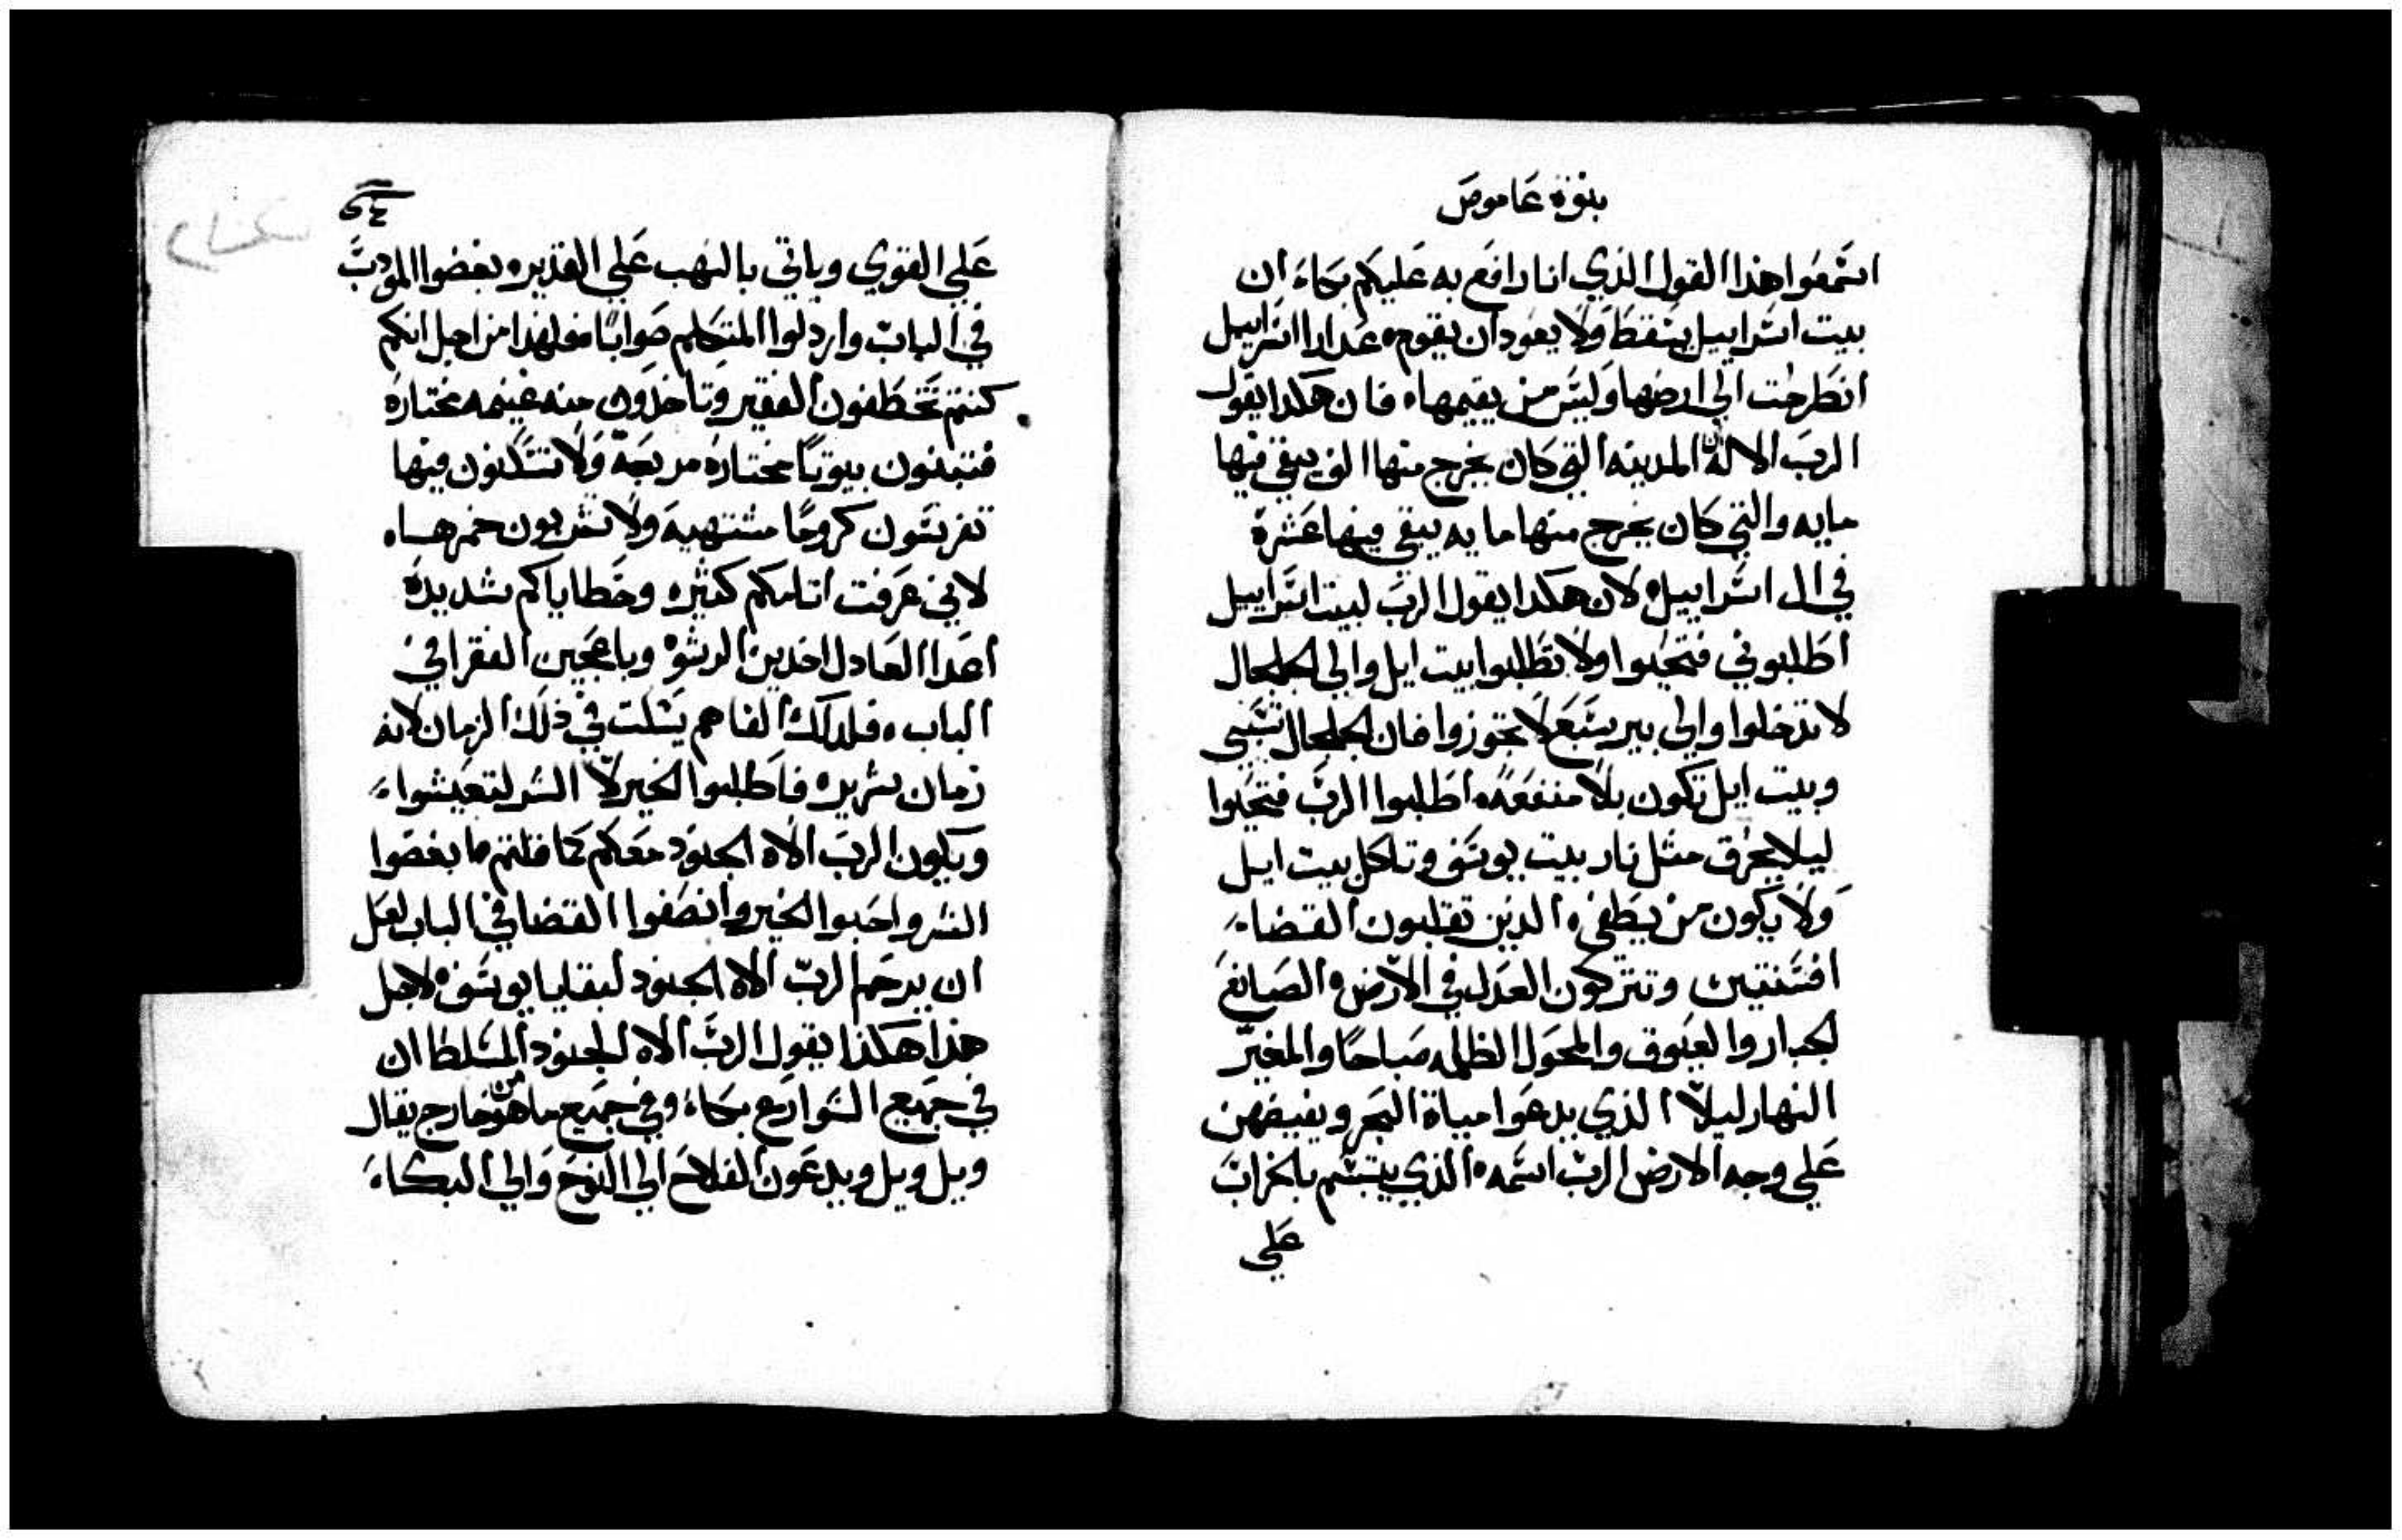 بنوة عاموص
استمعوا هذا القول الذي انا رافع به عليكم بكاء ان
بيت اسراييل يسقط ولا يعود ان يقوم عدارا اسراييل
انطرحت الي ارضها وليس من يقيمها فان هكدا يقول
الرب الاله ان المدينه التي كان يخرج منها الف يبقي فيها
مايه والتي كان يخرج منها مايه يبقي فيها عشرة
في ال اسراييل لان هكدا يقول الرب لبيت اسراييل
اطلبوني فتحيوا ولا تطلبوا بيت ايل والي الجلجال
لا تدخلوا والي بير سبع لا تجوزوا فان الجلجال تسبي
وبيت ايل تكون بلا منفعه اطلبوا الرب فتحيوا
ليلا يحرق مثل نار بيت يوسف وتاكل بيت ايل
ولا يكون من يطفي الذين تقلبون القضاء
افسنتين وتتركون العدل في الارض الصانع
الجبار والعيوق والمحول الظلمه صباحا والمغير
النهار ليلا الذي يدعوا مياة البحر ويفيضهن
علي وجه الارض الرب اسمه الذي يبتسم بالخراب
علي
علي القوي وياتي بالنهب علي القدير بغضوا المودب
في الباب واردلوا المتكلم صوابا فمن اجل انكم
كنتم تخطفون الفقير وتاخدون منه غنيمه مختارة
فتبنون بيوتا مختارة مربعة ولا تسكنون فيها
تغرسون كروما مشتهية ولا تشربون خمرها
لاني عرفت اتامكم كثيره وخطاياكم شديدة
اعدا العادل اخدين الرشوة وباعجين الفقرا في
الباب فلدلك الفاهم يسكت في ذلك الزمان لانه
زمان شرير فاطلبوا الخير لا الشر لتعيشوا
ويكون الرب الاه الجنود معكم كما قلتم ما بغضوا
الشر واحبوا الخير وانصفوا القضا في الباب لعل
ان يرحم الرب الاه الجنود لبقايا يوسف لاجل
هذا هكذا يقول الرب الاه الجنود المسلط ان
في جميع الشوارع بكاء وفي جميع ما هو من خارج يقال
ويل ويل ويدعون الفلاح الي النوح والي البكاء